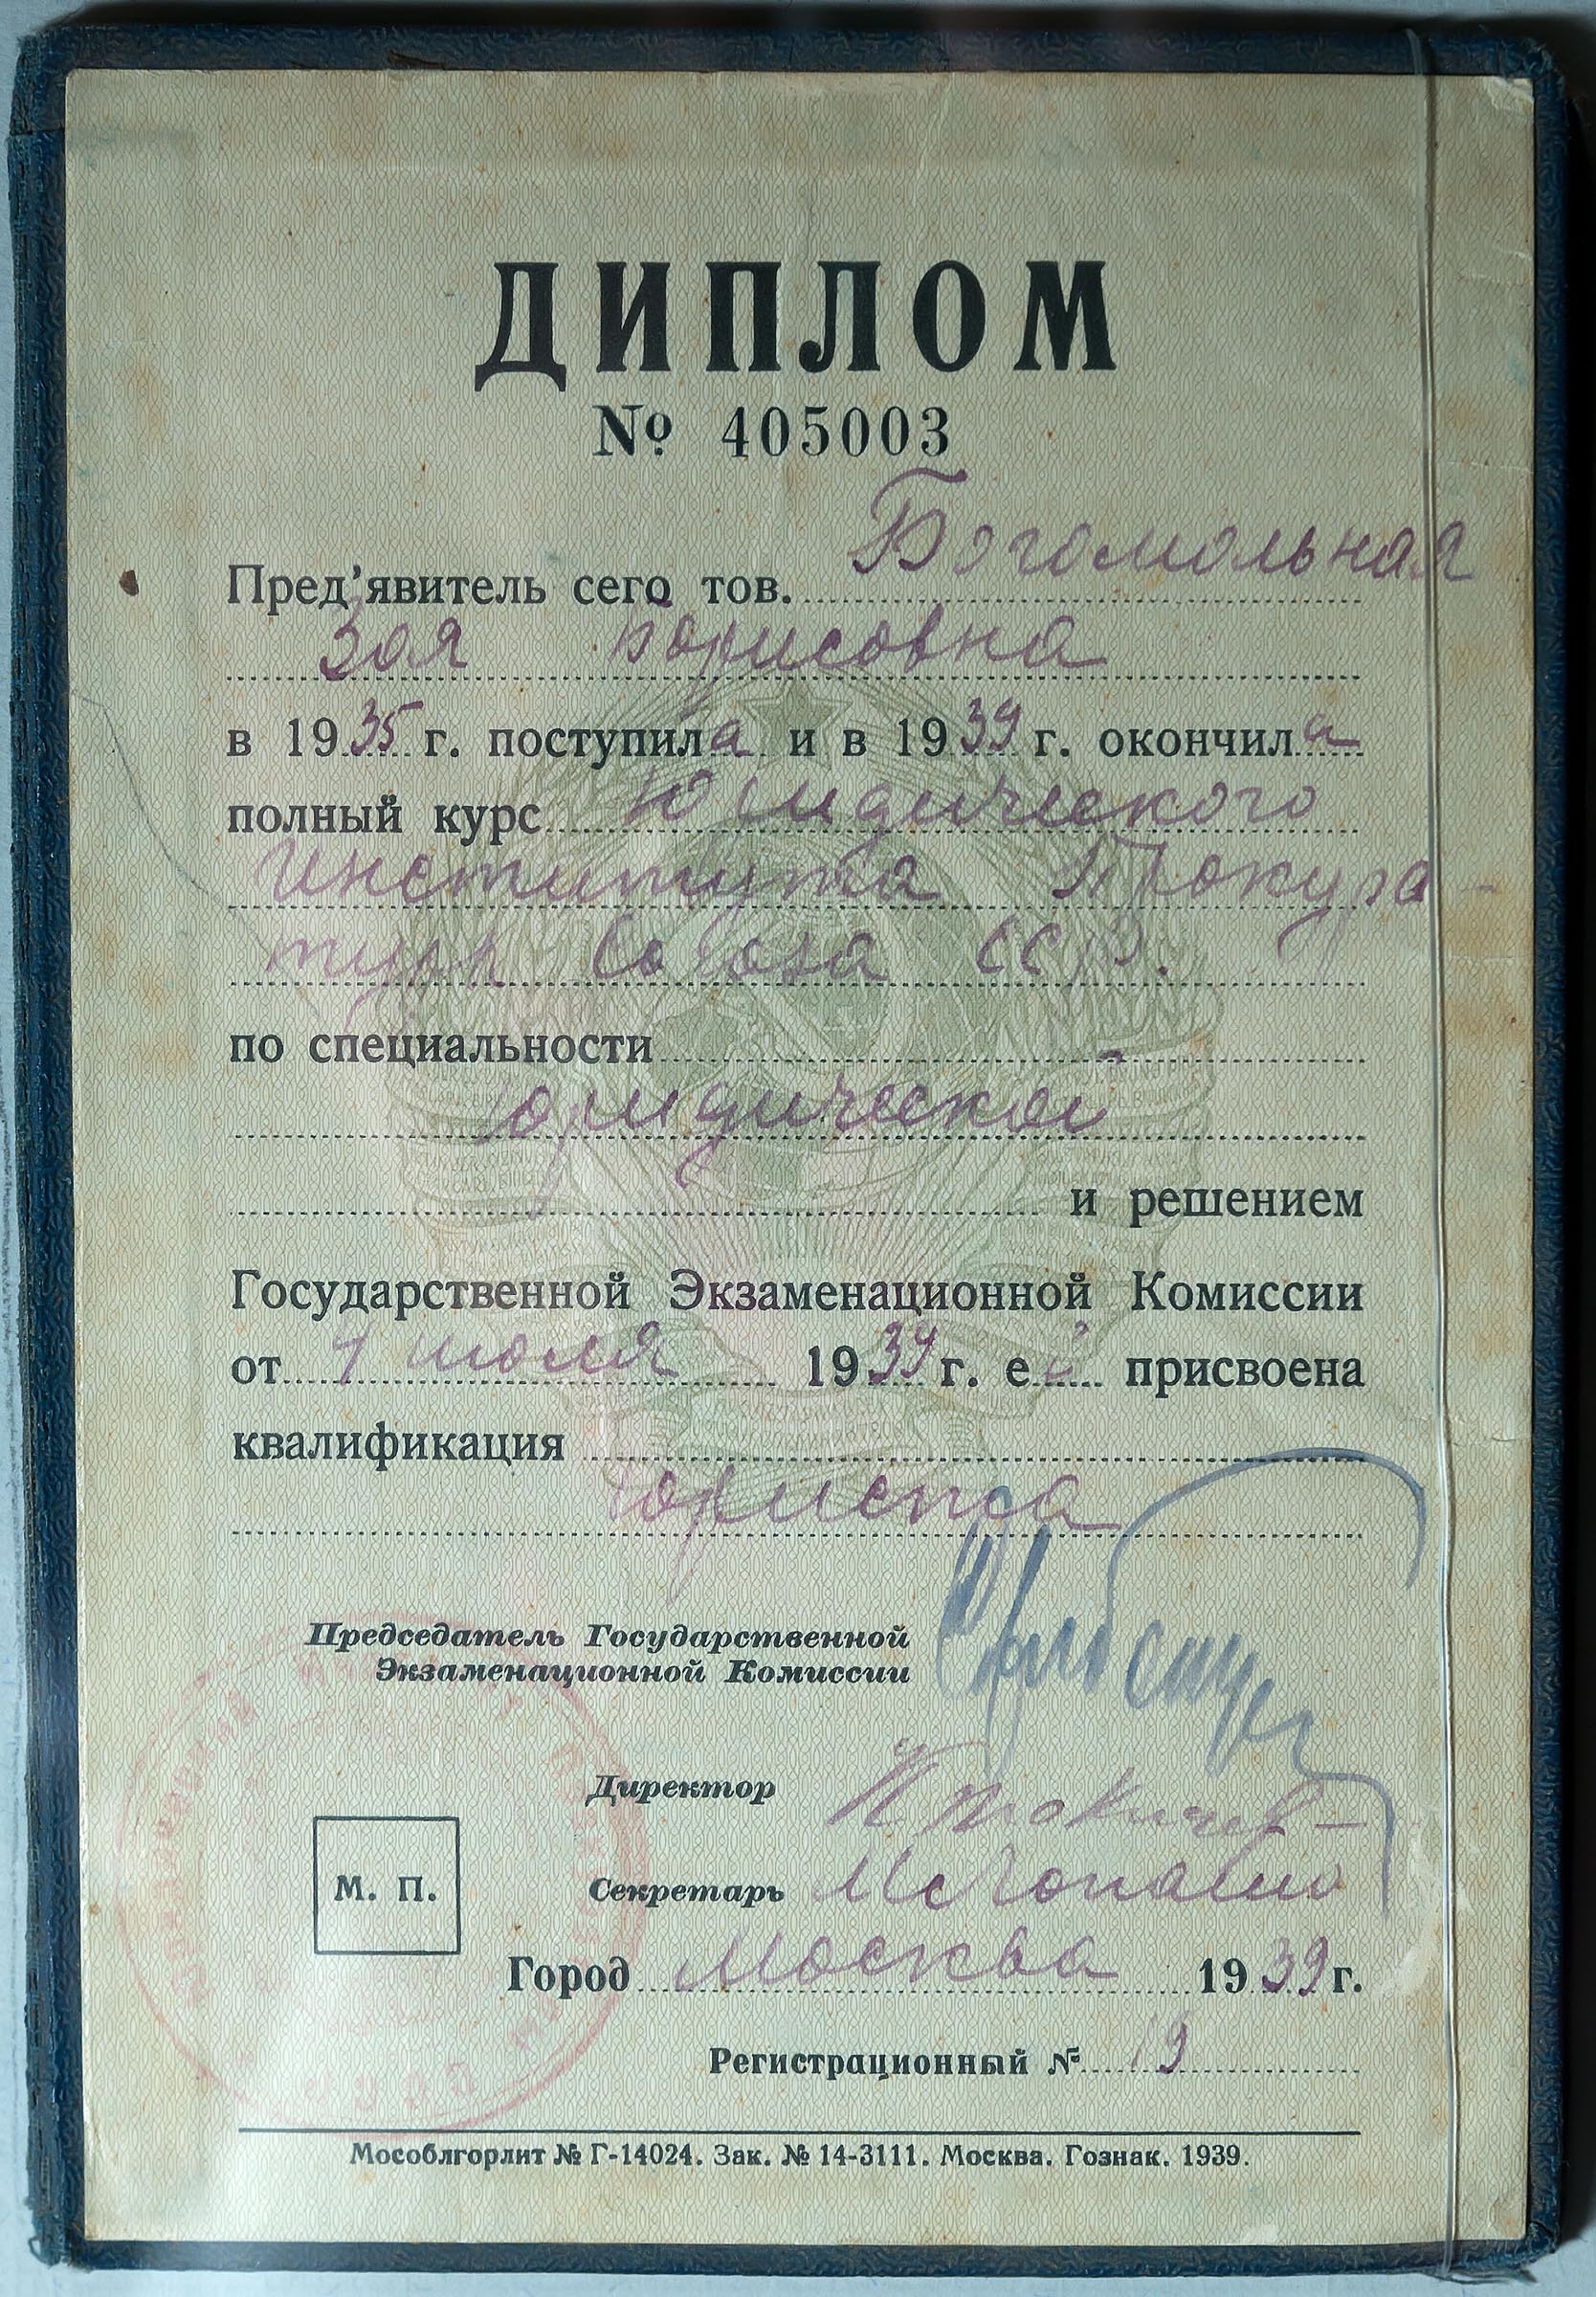 ДИПЛОМ
№ 405003
Пред'явитель сего тов. Богомольная
Зоя Борисовна
в 1935 г. поступила и в 1939 г. окончила
полный курс Юридического
Института Прокура-
туры Союза ССР.
по специальности
юридической
и решением
Государственной Экзаменационной Комиссии
от 1 июля 1939 г. ей присвоена
квалификация
юриста
Председатель Государственной
Экзаменационной Комиссии
Директор
М. П.
Секретарь
Город Москва 1939 г.
Регистрационный № 19
Мособлгорлит № Г-14024. Зак. № 14-3111. Москва. Гознак. 1939.